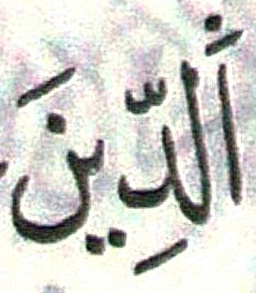 اَلدِّينَ